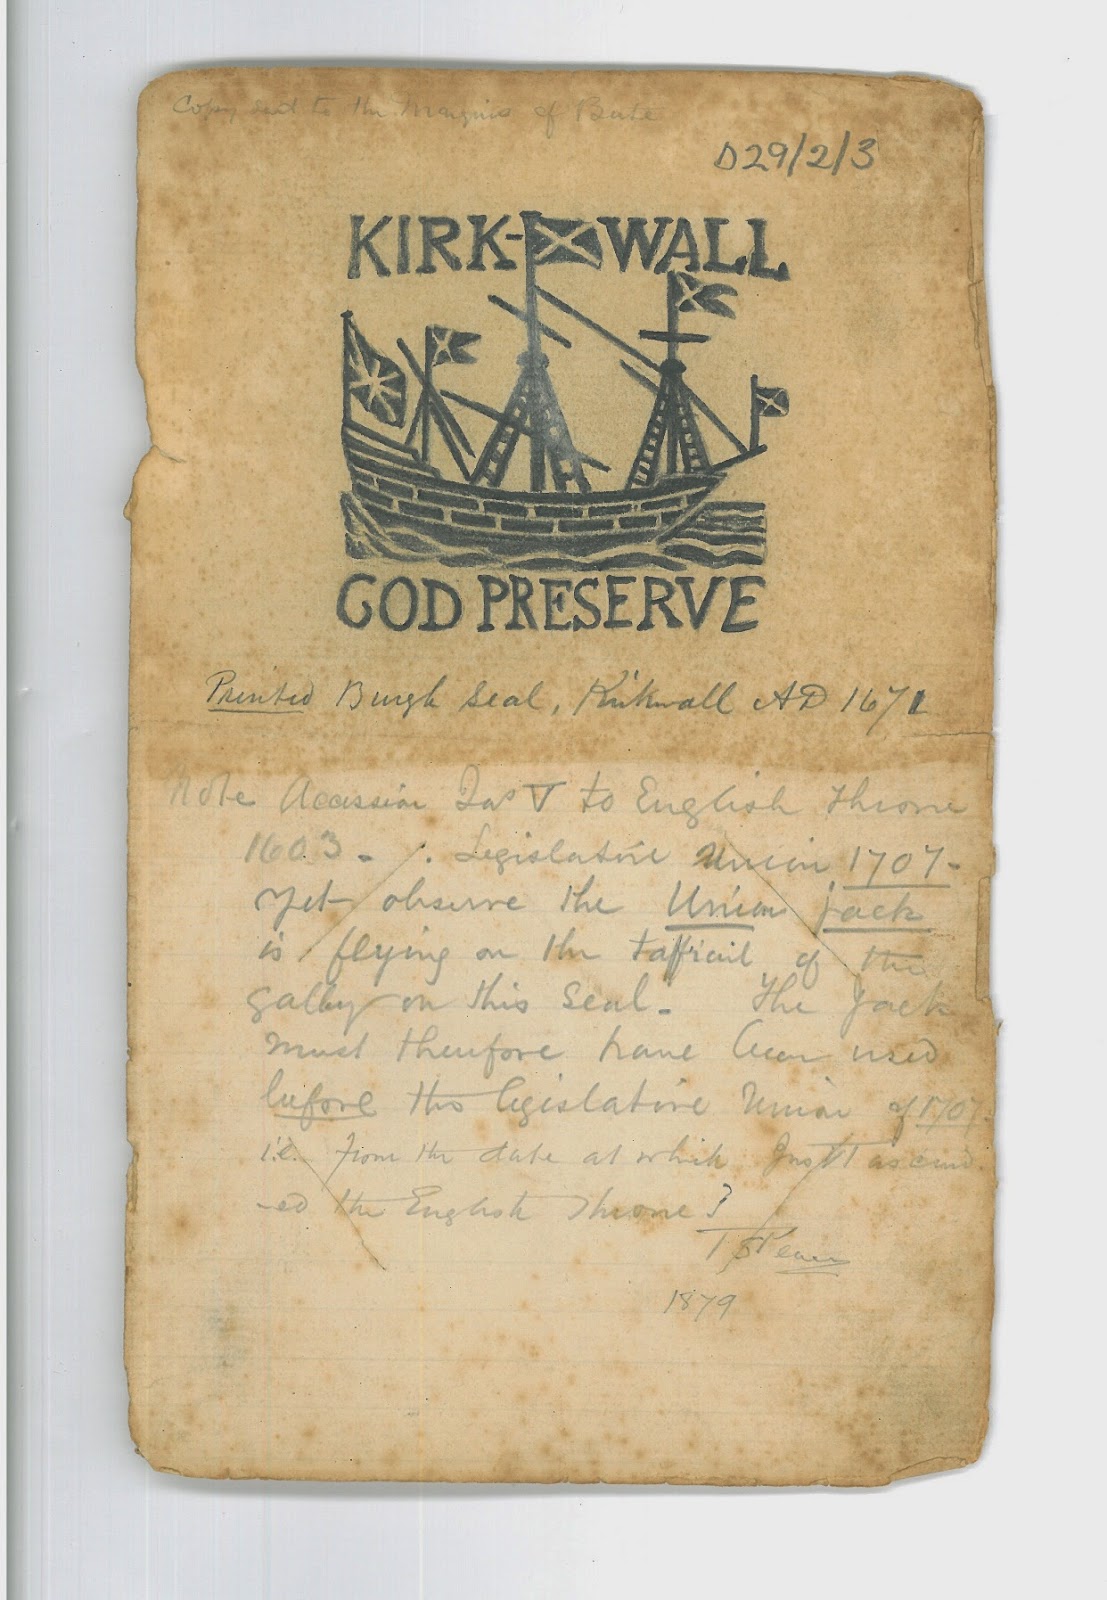 Copy sent to the Marquis of Bute
D29/2/3
KIRK-WALL
GOD PRESERVE
Printed Burgh Seal, Kirkwall AD 1671
Note Acession Jas V to English throne
1603 - . Legislative Union 1707 -
Yet observe the Union jack
is flying on the taffrail of the
galley on this Seal - The Jack
must therefore have been used
before the legislative Union of 1707.
i.e. from the date at which Jas VI ascend
-ed the English Throne?
1879